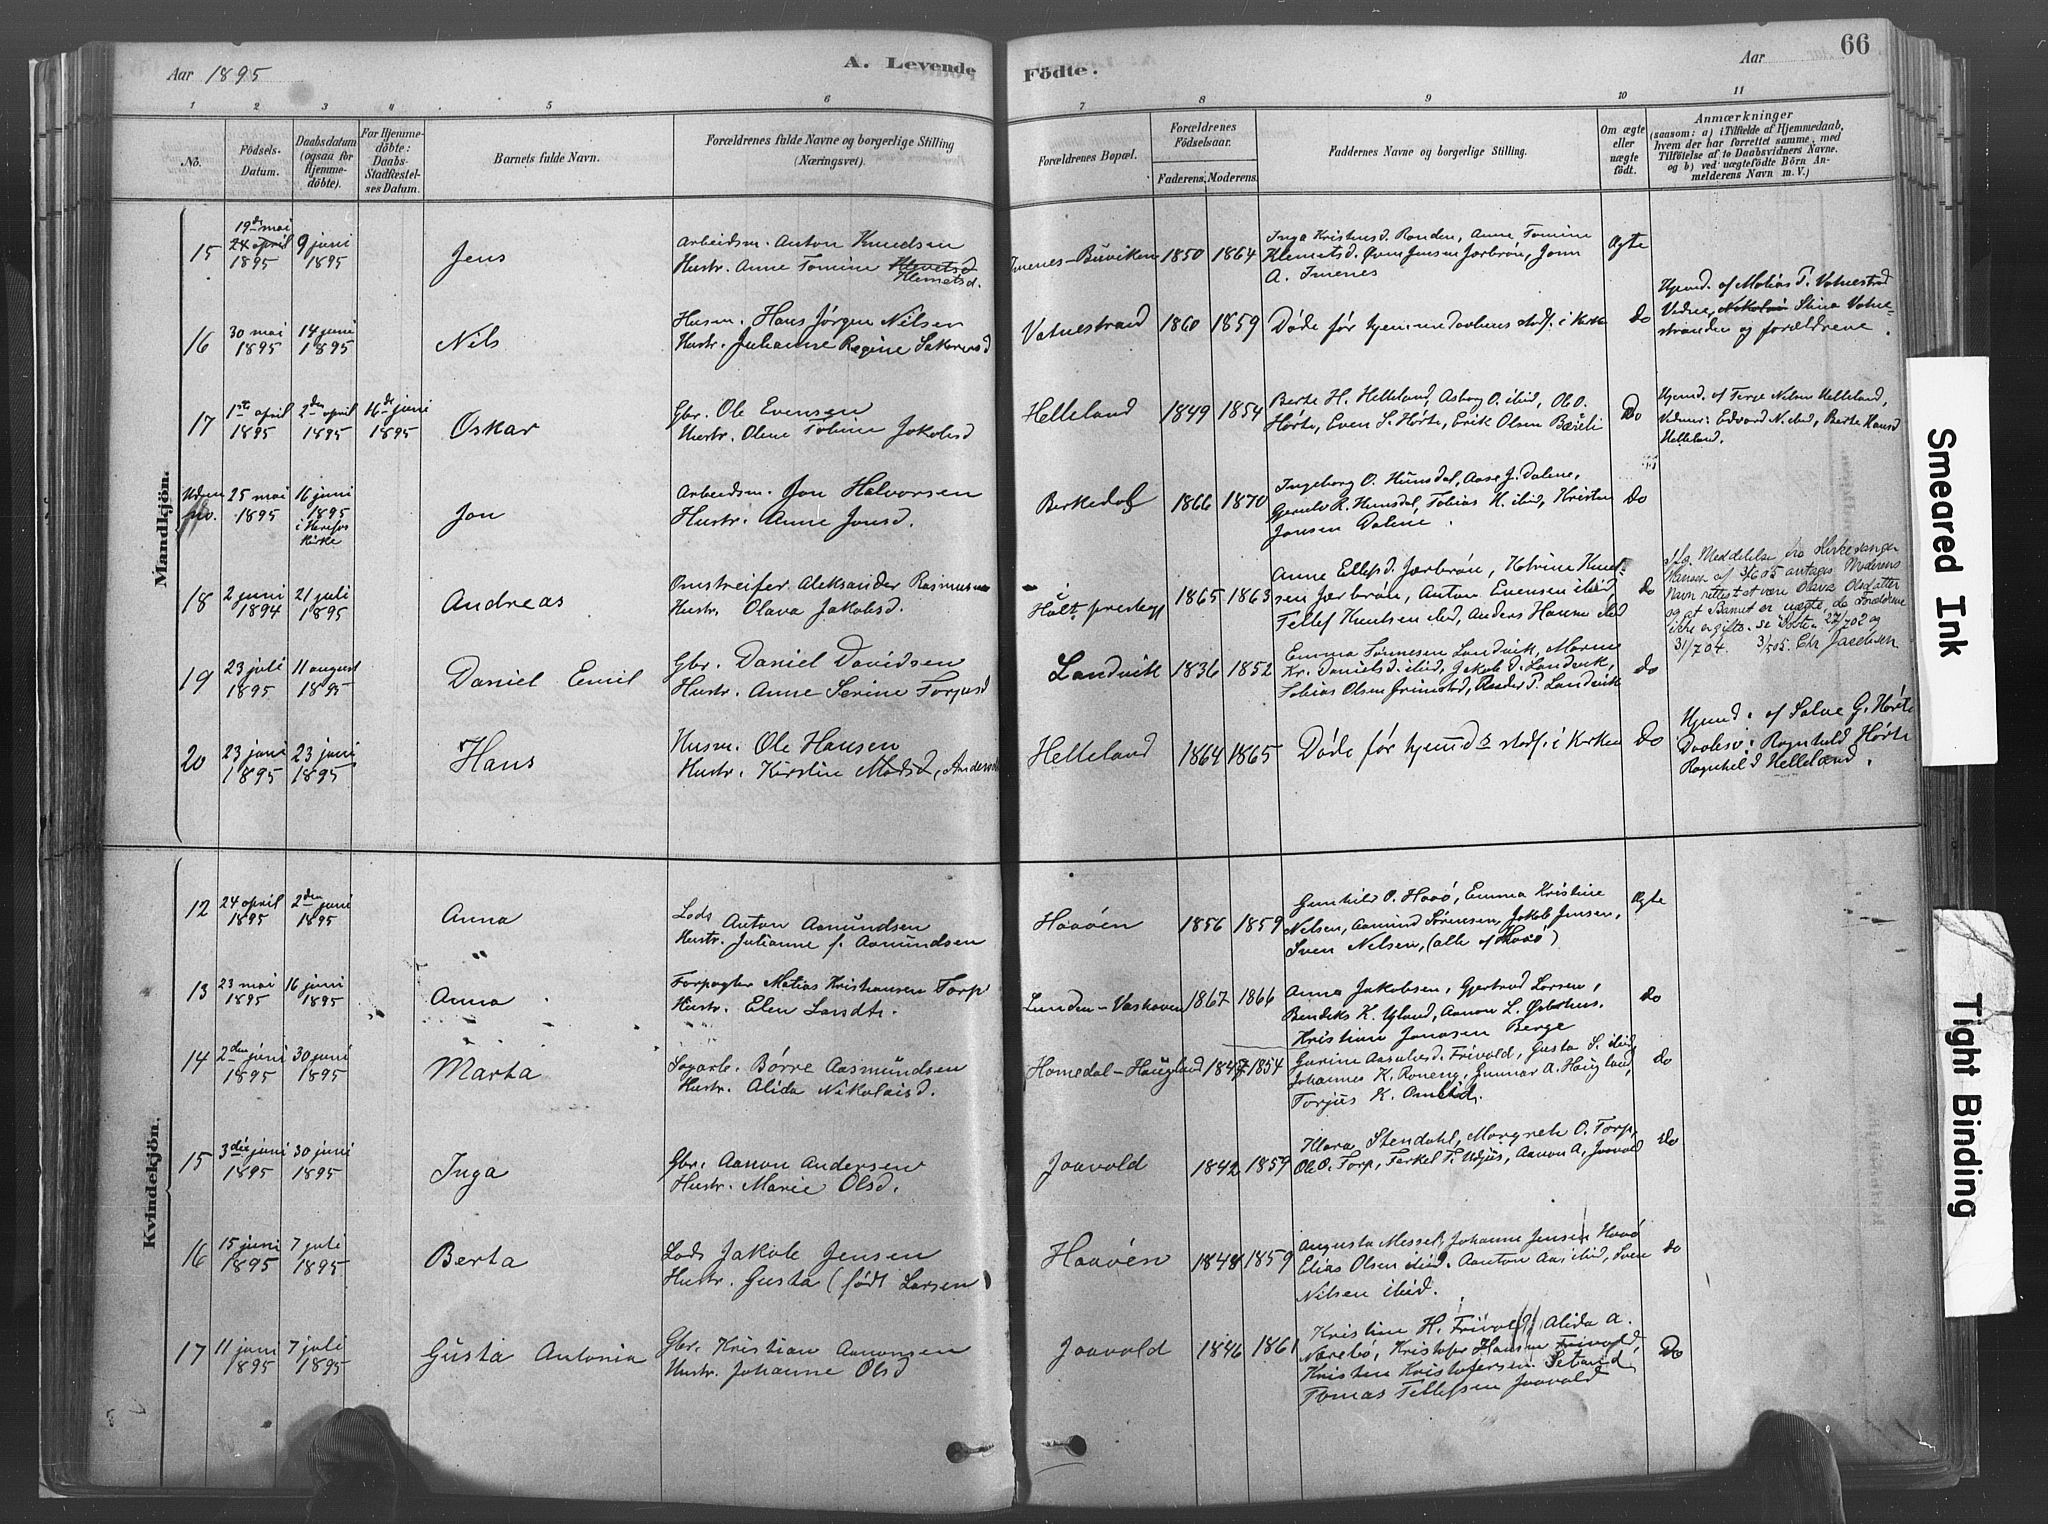 66
Aar 1895
A. Levende
Födte.
Aar
1 2 3 4 5 6 7 8 9 10 11
No.
Födsels-
Datum.
Daabsdatum
(ogsaa for
Hjemme-
döbte).
For Hjemme-
döbte:
Daabs-
Stadfæstel-
ses Datum.
Barnets fulde Navn.
Forældrenes fulde Navne og borgerlige Stilling
(Næringsvei).
Forældrenes Bopæl.
Forældrenes
Födselsaar.
Faderens. Moderens.
Faddernes Navne og borgerlige Stilling.
Om ægte
eller
uægte
födt.
Anmærkninger
(saasom: a) i Tilfælde af Hjemmedaab,
hvem der har forrettet samme, med
Tilföielse af to Daabsvidners Navne.
og b) ved uægtefödte Börn An-
melderens Navn m. V.)
Mandkjön.
15
19de mai
24 april
1895
9 juni
1895
Jens
Arbeidsm. Anton Knudsen
Hustr. Anne Tomine
Klemetsd.
Imenes-Buviken
1850 1864
Inga Kristensd. Ronden, Anne Tomine
Klemetsd. Jensen Jærbrön, Jonn
A. Imenes
Ægte
16
30 mai
1895
14 juni
1895
Nils
Husm. Hans Jørgen Nilsen
Hustr. Juhanne Regine Sakrisd
Vatnestrand
1860 1859
Døde før hjemmedaabens stadf. i kirken
do
Hjemd. af Matias T. Vatnestrad
Vidner Stina Vatne-
stranden og forældrene.
17
1ste april
1895
2den april
1895
16de juni
1895
Oskar
Gbr. Ole Evensen
Hustr. Oline Tobine Jakobsd
Helleland
1849 1854
Berte H. Helleland, Asborg O. ibid, Ole O.
Hörte, Even S. Hörte, Erik Olsen Bæveli
Do
Hjemd. af Terge Nilsen Helleland,
Vidner: Edvard N. ibid, Berte Hansd
Helleland.
Uden
no.
25 mai
1895
16 juni
1895
i Herefos
kirke
Jon
Arbeidsm. Jon Halvorsen
Hustr. Anne Jonsd.
Birkedal
1866 1870
Ingeborg O. Hunsdal, Aase J. Dalene,
R. Hunsdal, Tobias K. ibid, Kristen
Jonsen Dalene.
do
18
2 juni
1894
21 juli
1895
Andreas
Omstreifer Aleksander Rasmusen
Hustr. Olava Jakobsd.
Holt præstegj
1865 1863
Anne Ellefsd. Jærbrön, Katrine Knud-
sen Jærbrön, Anton Evensen ibid,
Tellef Knutsen ibid, Anders Hanne ibid
do
Ifg. Meddelelse fra Kirkesanger
Hansen af 3/6 05 antages Moderens
Navn rettest at være Olava Olsdatter
og at Barnet er uægte, da Forældrene
ikke er gifte. se Döbte 27/702 og
31/704. 3/505. Chr Jacobsen
19
23 juli
1895
11 august
1895
Daniel Emil
Gbr. Daniel Davidsen
Hustr. Anne Serine Torjusd
Landvik
1836 1852
Emma Tönnesen Landvik, Maren
Kr. Danielsd. ibid, Jakob D. Landvik,
Tobias Olsen Grimstad, Ander P. Landvik
do
20
23 juni
1895
23 juni
1895
Hans
Husm. Ole Hansen
Hustr. Kirstine Madsd,
Helleland
1864 1865
Døde før hjemds stadf. i Kirken
do
Hjemd: af Salve G. Hörte
Daabsv: Ragnhild Hörte
Ragnhild Helleland.
Kvindekjön.
12
24 april
1895
2den juni
1895
Anna
Lods Anton Aamundsen
Hustr. Julianne f. Aamundsen
Haaöen
1856 1859
Gunhild O. Haaö, Emma Kristine
Nilsen, Aamund Sörensen, Jakob Jensen,
Sven Nelsen, (alle af Haaö)
Ægte
13
23 mai
1895
16 juni
1895
Anna
Forpagter Matias Kristiansen Torp
Hustr. Elen Larsdtr.
Lunden-Vashaven
1867 1866
Anna Jakobsen, Gjertrud Larsen,
Bendiks K. Ugland, Aanon L. Øvlshus.
Kristian Jonasen Berge
do
14
2den juni
1895
30 juni
1895
Marta
Sagarb. Börre Aasmundsen
Hustr. Alida Nikolaisd.
Homedal-Haugland
1847 1854
Gurine Aasulvsd. Frivold, Gusta S. ibid,
Johannes K. Roneng, Gunnar A. Haugland,
Torjus K. Omlid.
do
15
3die juni
1895
30 juni
1895
Inga
Gbr. Aanon Andersen
Hustr. Marie Olsd.
Jaavold
1842 1859
Klara Stendahl, Margreth O. Torp,
Ole O. Torp, Terkel T. Udjus, Aanon A. Jaavold
do
16
15 juni
1895
7 juli
1895
Berta
Lods Jakob Jensen
Hustr. Gusta (født Larsen)
Haaöen
1848 1859
Augusta Messel, Johanne Jensen Haaö
Elias Olsen ibid. Aanton Aas ibid, Sven
Nilsen ibid.
do
17
11 juni
1895
7 juli
1895
Gusta Antonia
Gbr. Kristian Aanonsen
Hustr. Johanne Olsd
Jaavold
1846 1861
Kristine H. Frivold, Alida A.
Narebö, Kristofer Hansen Frivold,
Kristen Kristofersen Setand
Tomas Tellefsen Jaavold
Do
Smeared Ink
Tight Binding